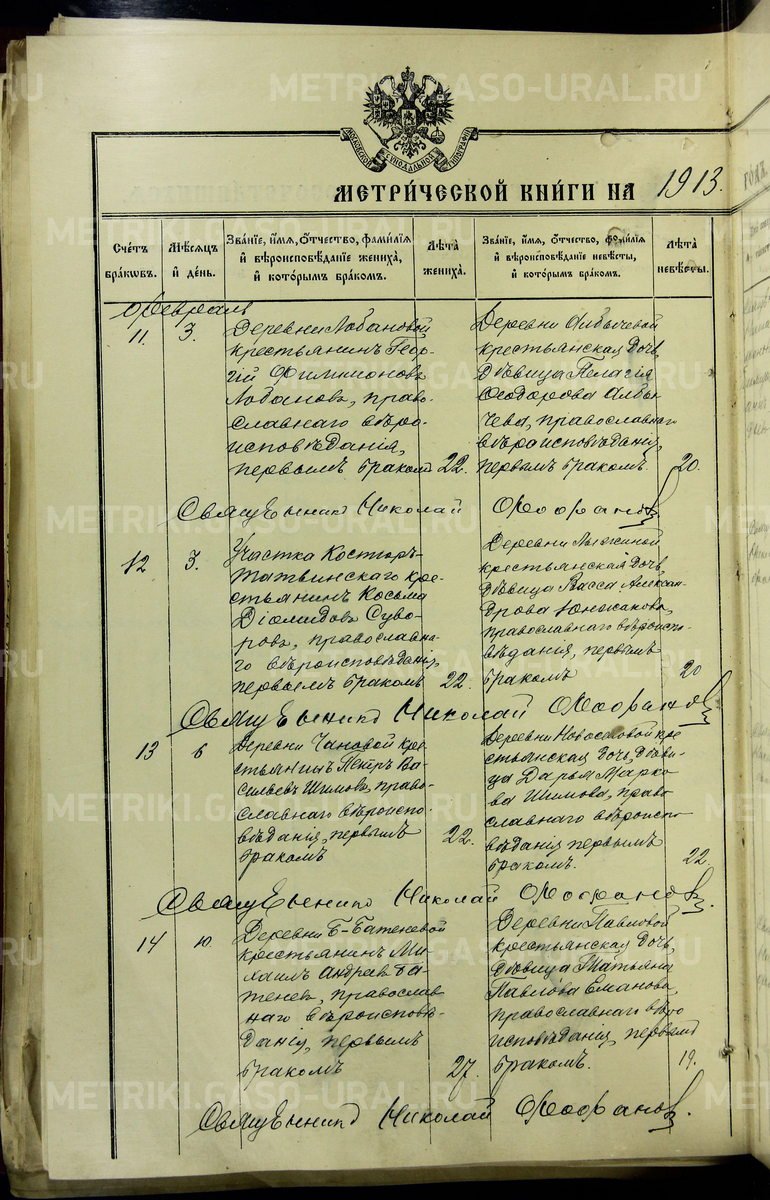 METRIKI.GASO-URAL.RU
МОСКОВСКОЙ СѴНОДАЛЬНОЙ ТИПОГРАФІИ
МЕТРИ́ЧЕСКОЙ КНИ́ГИ НА 1913.
Сче́тъ бра́кωвъ.
Мѣ́сѧцъ и҆ де́нь.
Зва́нїе, и҆́мѧ, ѻ҆́тчество, фами́лїѧ и҆ вѣроисповѣ́данїе жениха̀, и҆ кото́рымъ бра́комъ.
Лѣ́та жениха̀.
Зва́нїе, и҆́мѧ, ѻ҆́тчество, фами́лїѧ и҆ вѣроисповѣ́данїе невѣ́сты, и҆ кото́рымъ бра́комъ.
Лѣ́та невѣ́сты.
Февраль
11.
3.
Деревни Лобановой
крестьянинъ Геор-
гій Филимоновъ
Лобановъ, право-
славнаго вѣро-
исповѣданія,
первымъ бракомъ
22.
Деревни Албычевой
крестьянская дочь,
дѣвица Пелагія
Ѳеодорова Албы-
чева, православнаго
вѣроисповѣданія,
первымъ бракомъ.
20.
Священникъ Николай
12
3.
Участка Костюръ-
Татвинскаго кре-
стьянинъ Косьма
Діомидовъ Суво-
ровъ, православна-
го вѣроисповѣданія,
первымъ бракомъ
22.
Деревни
крестьянская дочь,
дѣвица Васса Алексан-
дрова Южакова,
православнаго вѣроиспо-
вѣданія, первымъ
бракомъ
20
Священникъ Николай
13
6
Деревни Чановой кре-
стьянинъ Петръ Ва-
сильевъ Шимовъ, право-
славнаго вѣроиспо-
вѣданія, первымъ
бракомъ
22.
Деревни Новоселовой кре-
стьянская дочь, дѣви-
ца Дарья Марко-
ва Шимова, право-
славнаго вѣроиспо-
вѣданія первымъ
бракомъ.
22.
Священникъ Николай
14
10.
Деревни Б-Батеневой
крестьянинъ Ми-
хаилъ Андреевъ Ба-
теневъ, православ-
наго вѣроисповѣ-
данія, первымъ
бракомъ
27.
Деревни Павловой
крестьянская дочь,
дѣвица Татьяна
Павлова Еманова,
православнаго вѣро-
исповѣданія, первымъ
бракомъ.
19.
Священникъ Николай